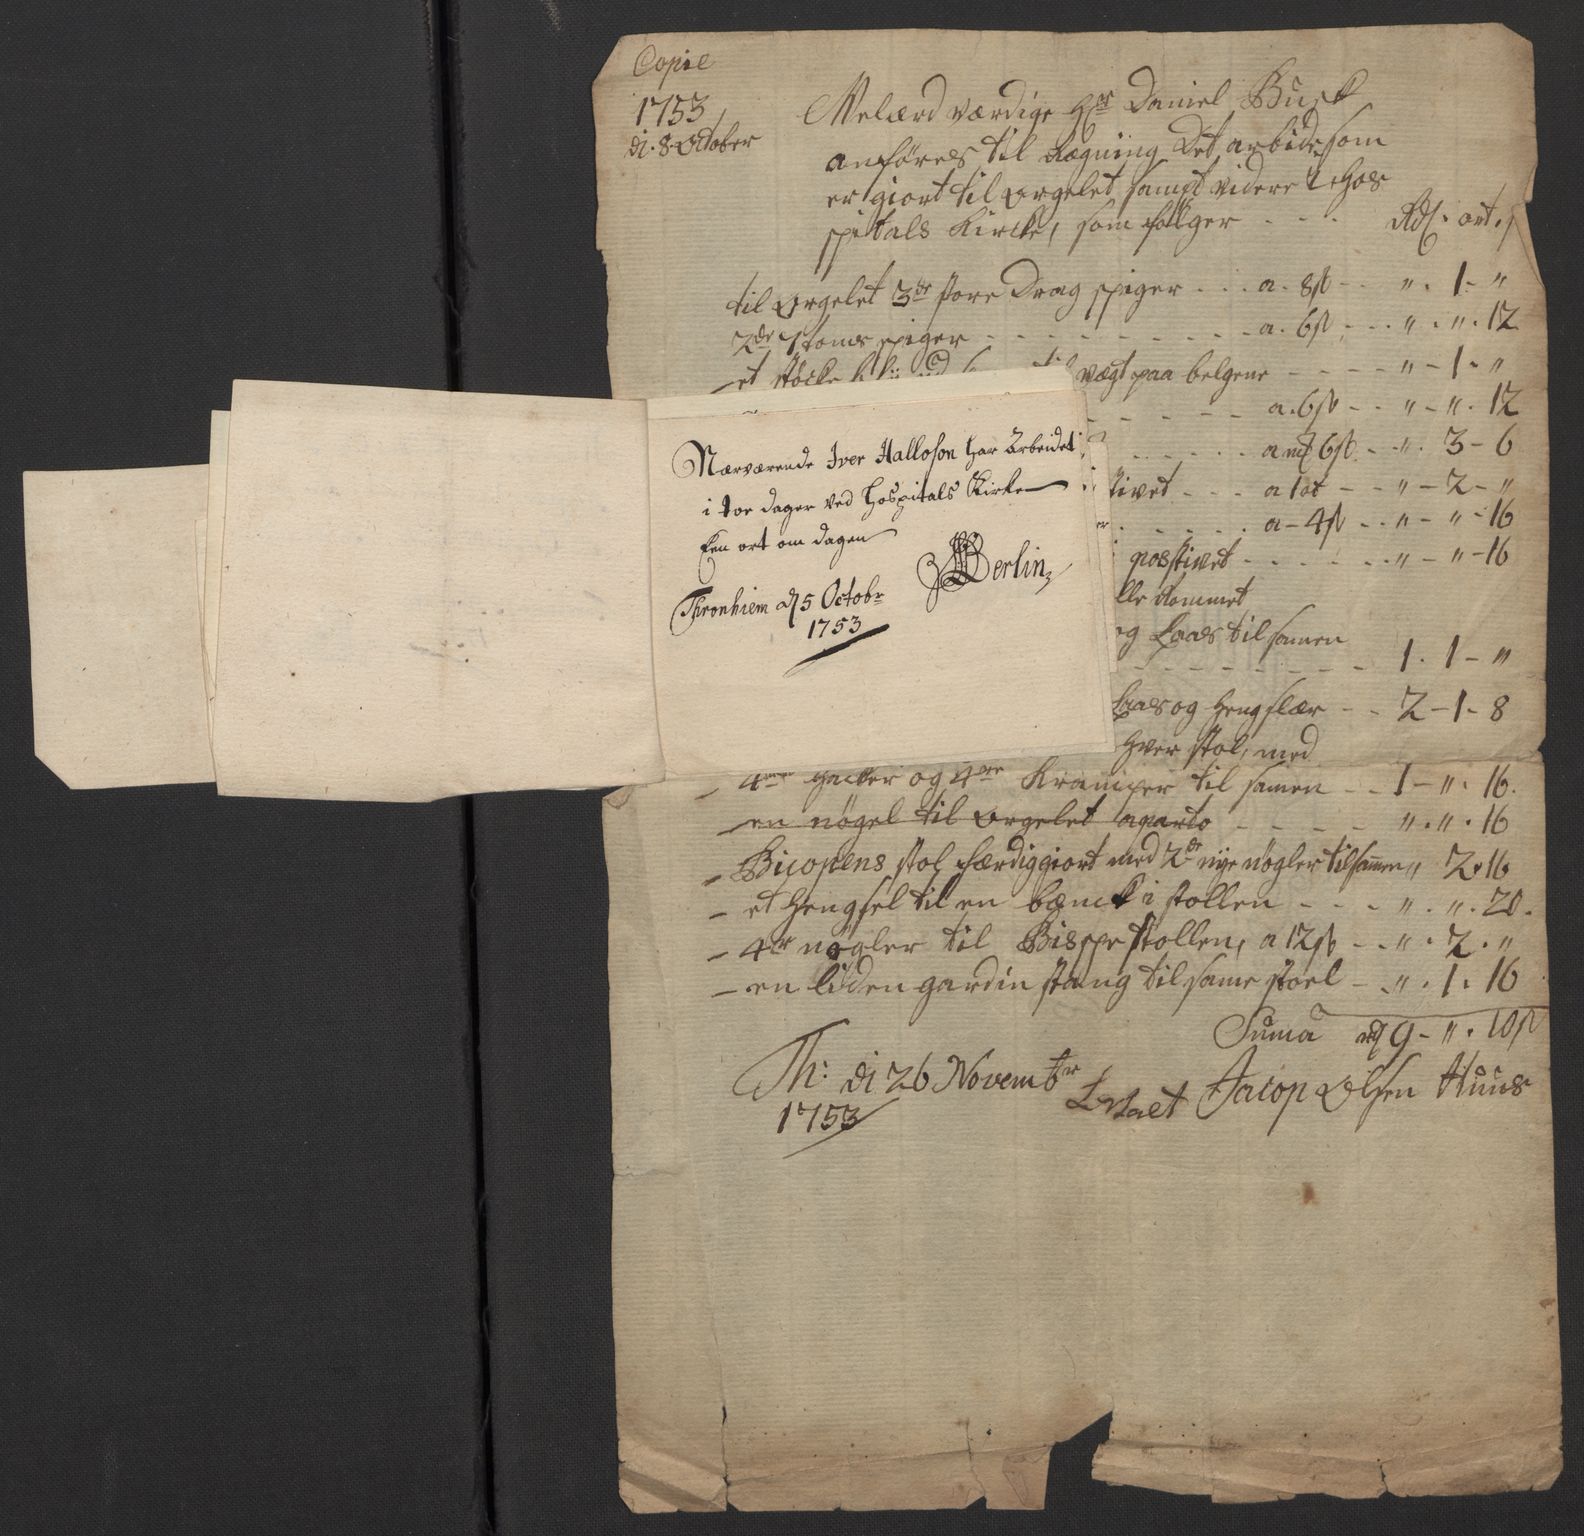 Copie
1753
di. 8 October
Velærdværdige Hr Daniel Busk
anføres til Rægning Det arbide som
er giort til orgelet, sampt videre i Hos
spitals Kircke, som følger - - - Rdl. ort. s
til orgelet 3de store Drag spiger - - - a. 8s - - " . 1. "
2de stoms spiger - - - a. 6s - - " . " . 12
et støcke vægt paa belgene - - - - " - 1 - "
- - - - a. 6s - - " - " . 12
- - - - a 6s - - " . 3 - 6
- - - a 1 ort - - " - 2 - "
- - - - a - 4s - - " - " - 16
posstivet - - - - - - " - " - 16
og Laas til samen
- - - - - - 1 . 1 - "
Laas og Hengslær - - 2 - 1 - 8
Hver stol, med
- og 4re Kramper til samen - - 1 - " . 16.
- en nøgel til orgelet aparto - - - - - " . " . 16
- stol færdiggiort med 2de nye nøgler tilsamen " 2 . 16
- et Hengsel til en bænck i stollen - - - " . " . 20.
- 4re nøgler til Bispe stollen, a 12s - - " . 2 . "
- en liden gardin stang til same stoel - - " . 1 . 16
Suma rd 9 - " . 10s
Th: di 26 Novembr
1753
Jacop Olsen Huus
Nærværende Iver Halloson har Arbeidet
i toe dager ved Hospitals Kirke
Een ort om dagen
Berlin
Thronhiem d 5 Octobr
1753